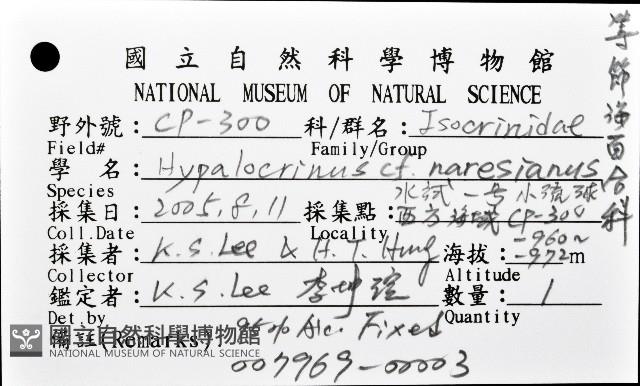 等節海百合科
國立自然科學博物館
NATIONAL MUSEUM OF NATURAL SCIENCE
野外號: CP-300 科/群名: Isocrinidae
Field# Family/Group
學 名: Hypalocrinus cf. naresianus
Species 水試一号 小琉球
採集日: 2005, 8, 11 採集點: 西方海域 CP-300
Coll.Date Locality
採集者: K. S. Lee & H. T. Hung 海拔: -960~-972 m
Collector Altitude
鑑定者: K. S. Lee 李坤瑄 數量: 1
Det.by Quantity
備註(Remarks) 95% Alc. Fixed
007969-00003
國立自然科學博物館
NATIONAL MUSEUM OF NATURAL SCIENCE